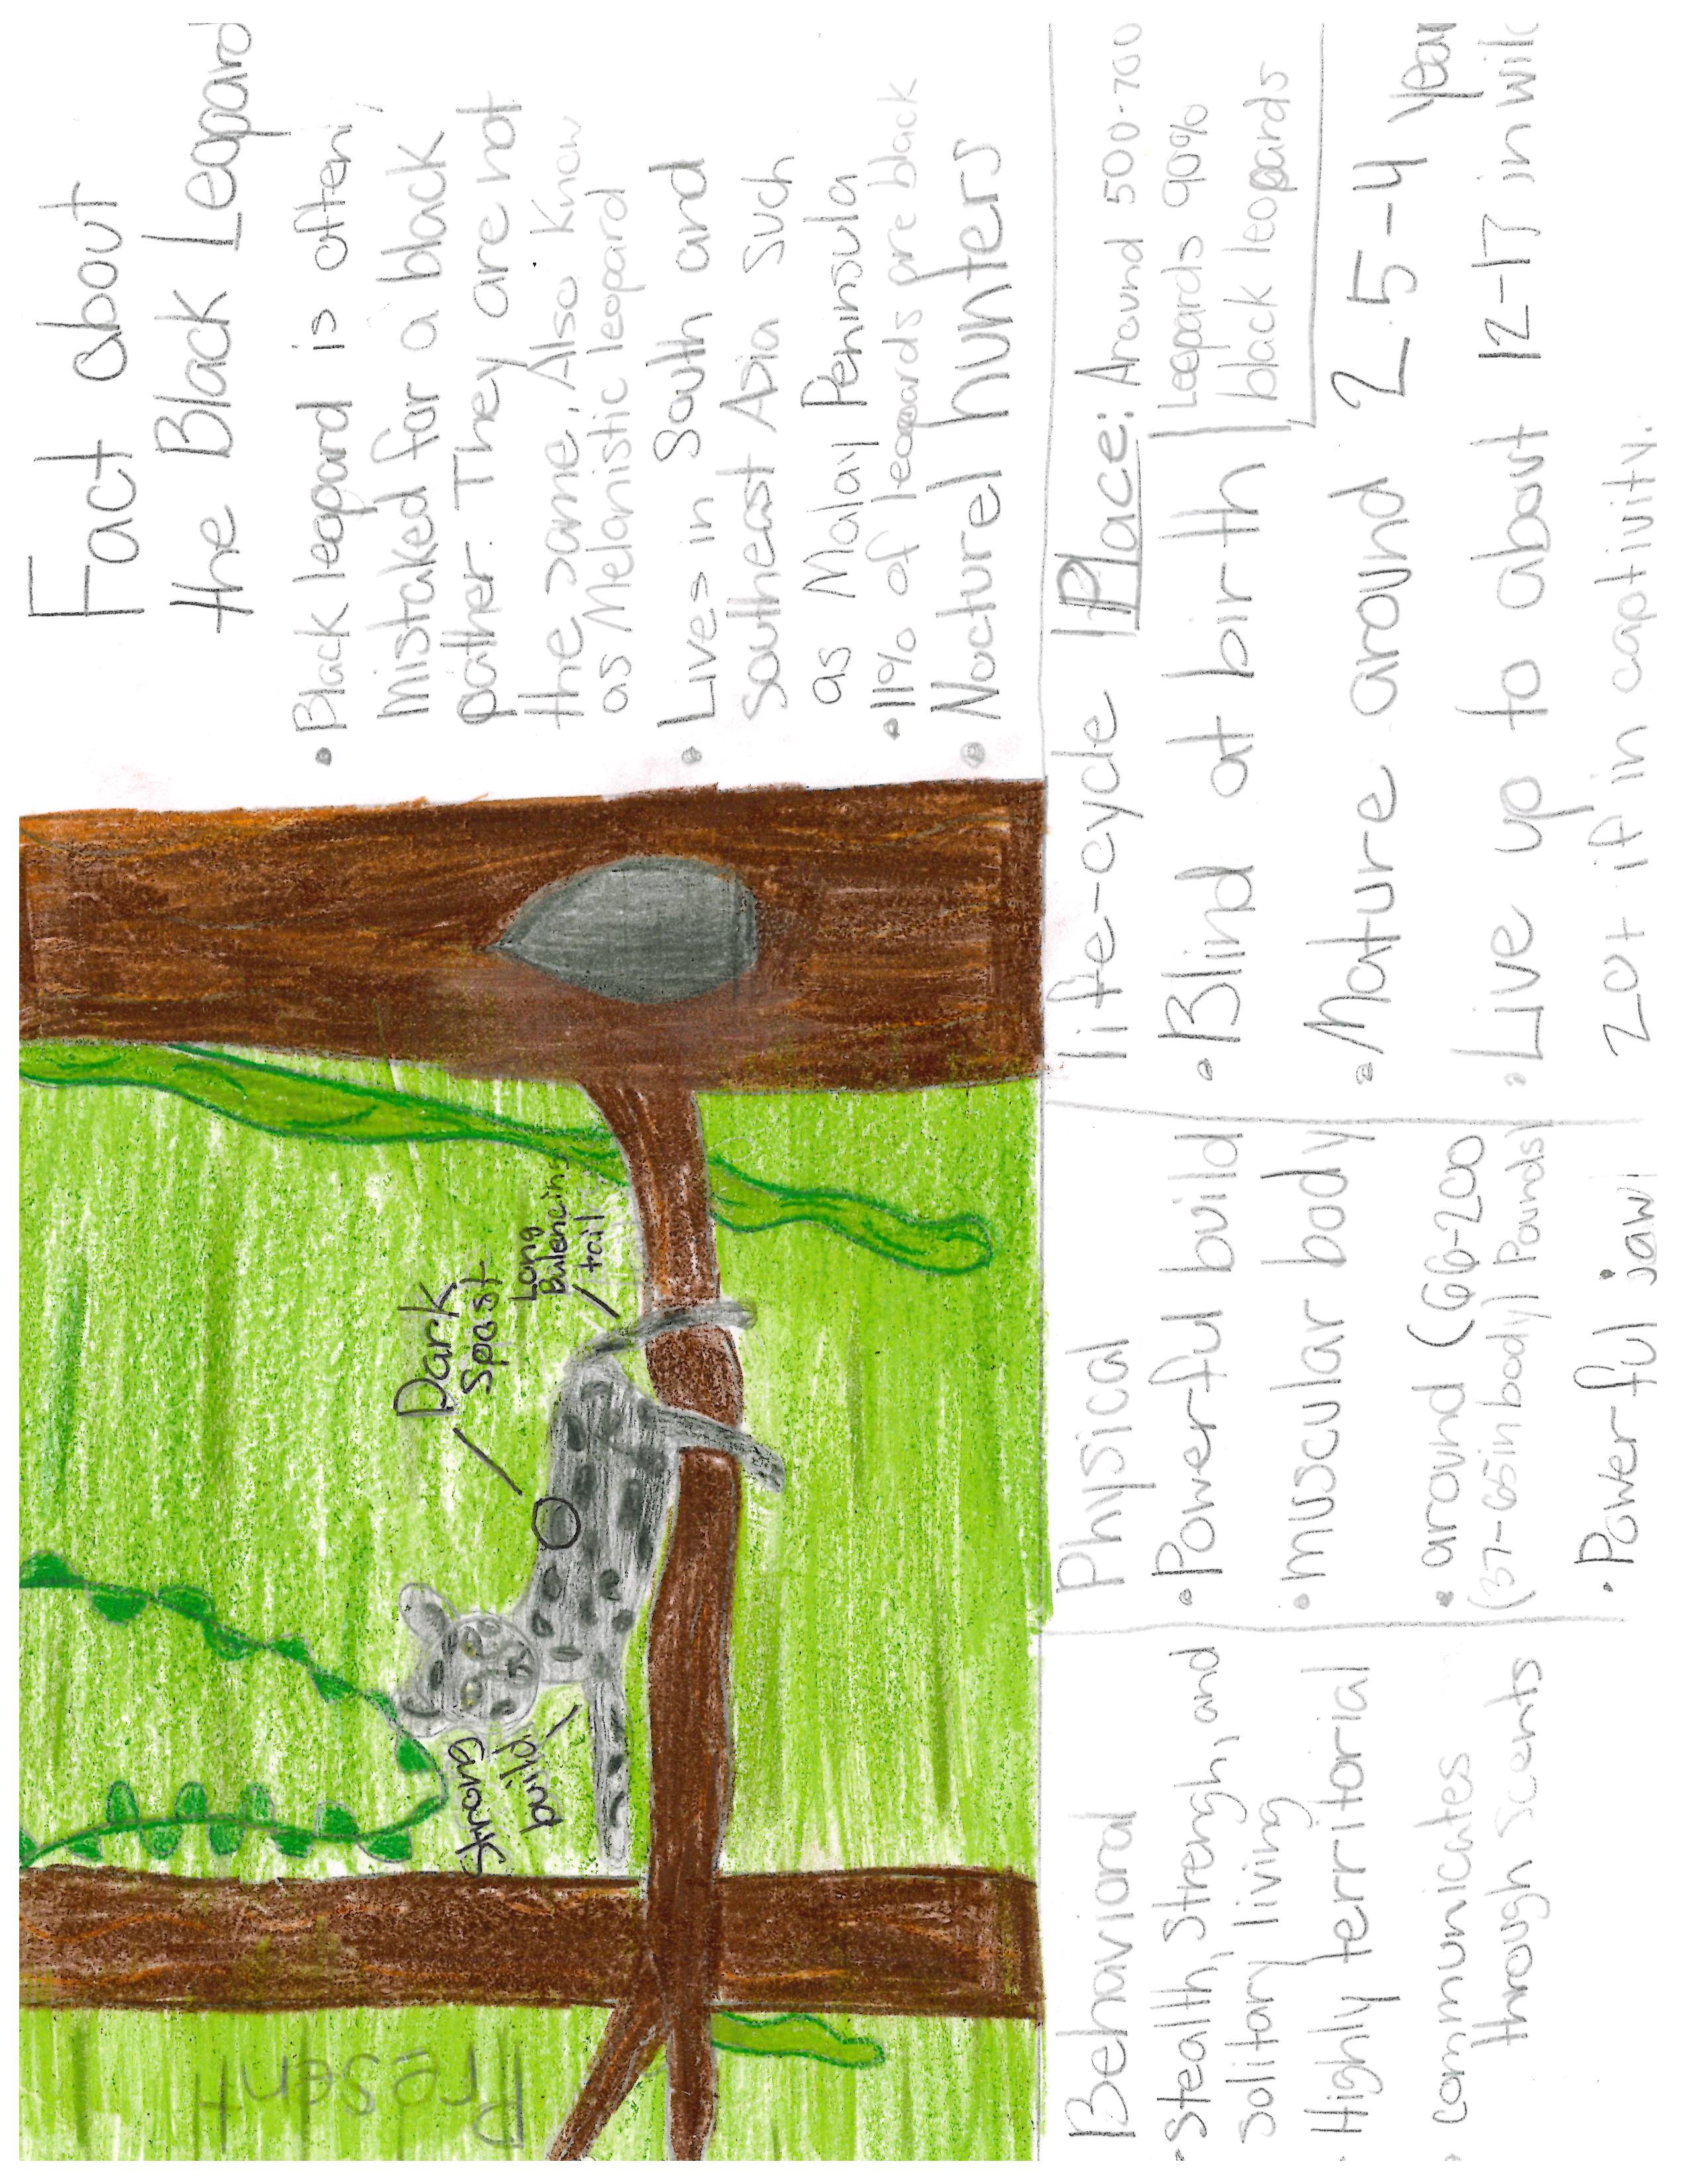 Present
strong
build
Dark
Spast
Long
Balencing
tail
Fact about
the Black Leopard
• Black leopard is often
mistaked for a black
pather. They are not
the same. Also Know
as Melanistic leopard
• Lives in South and
Southeast Asia such
as Malay Peninsula
• 11% of leopards are black
• Nocturel hunters
Behavioral
• Stealth, strength, and
solitary living
Highly territorial
• communicates
through scents
Physical
• Powerful build
• muscular body
• around (66-200
(37-65in body) Pounds)
• Powerful jaw
life-cycle
• Blind at birth
• Mature around 2.5-4 year
• Live up to about 12-17 in wild
20+ if in captivity.
Place: Around 500-700
Leopards 90%
black leopards